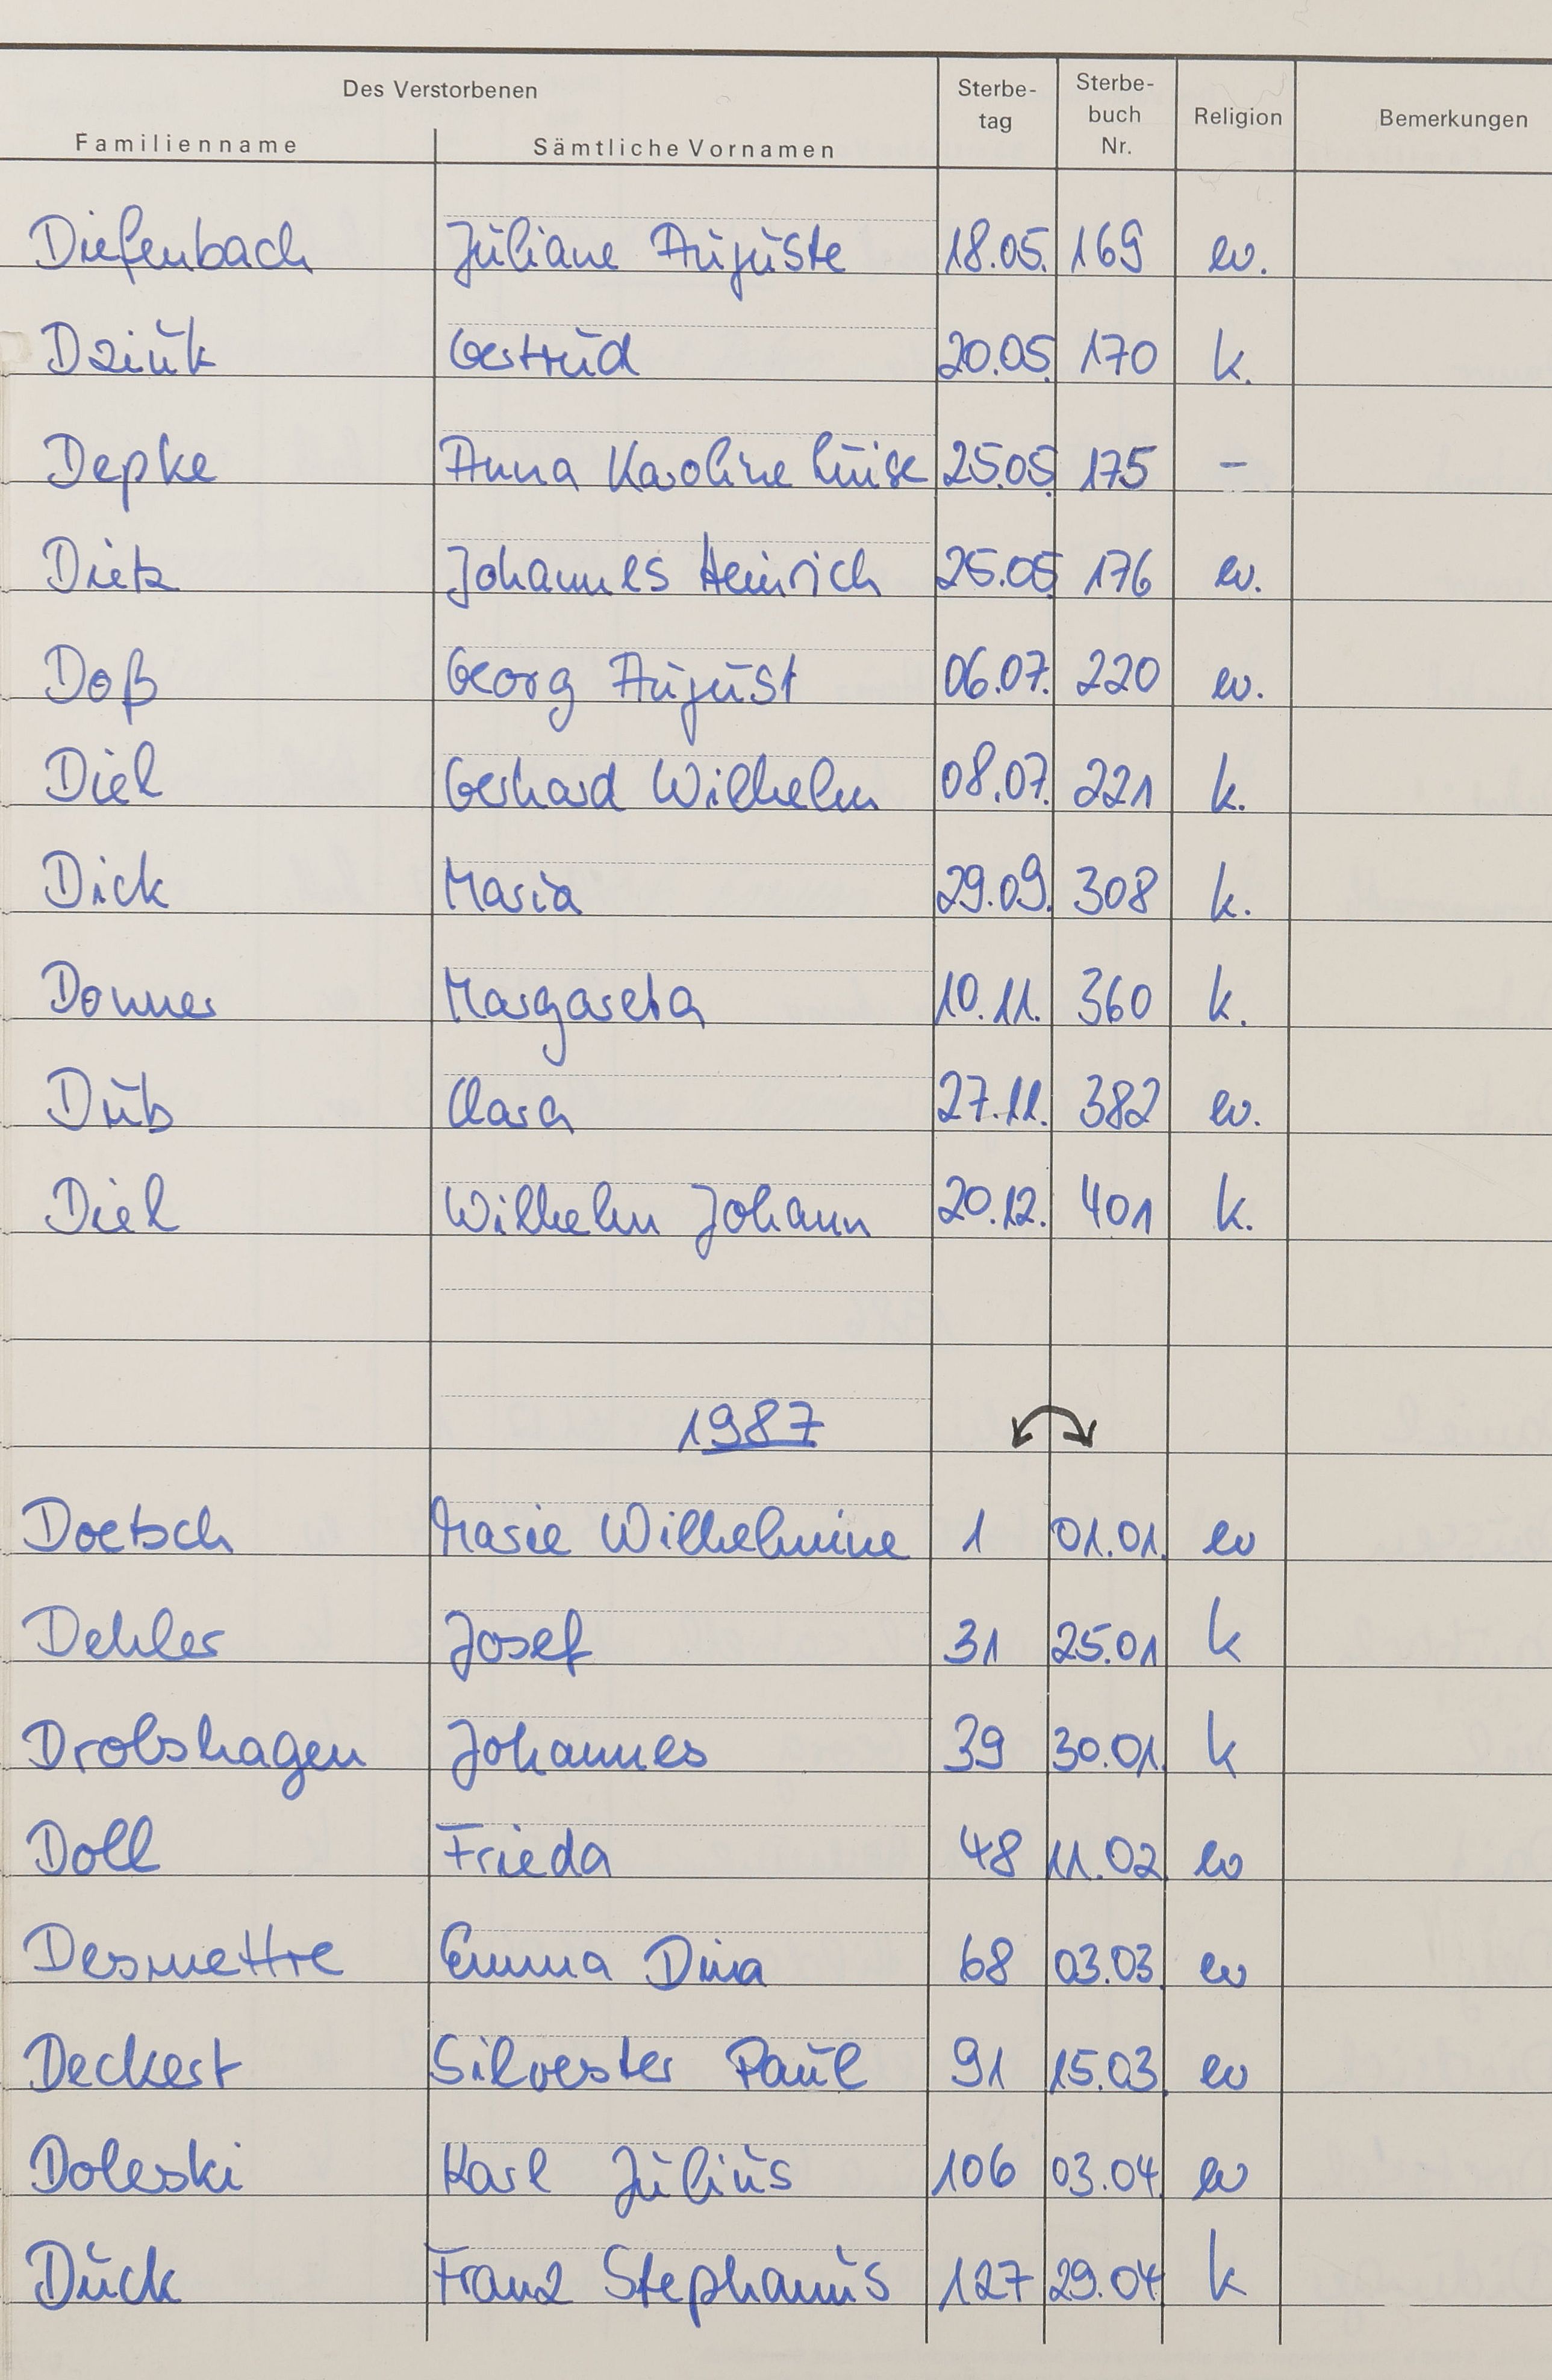 Des Verstorbenen
Familienname Sämtliche Vornamen Sterbe-tag Sterbe-buch Nr. Religion Bemerkungen
Diefenbach Juliane Auguste 18.05. 169 ev.
Dziuk Gertrud 20.05. 170 k.
Depke Anna Karoline Luise 25.05. 175 –
Dietz Johannes Heinrich 25.05. 176 ev.
Doß Georg August 06.07. 220 ev.
Diel Gerhard Wilhelm 08.07. 221 k.
Dick Maria 29.09. 308 k.
Donner Margareta 10.11. 360 k.
Dub Clara 27.11. 382 ev.
Diel Wilhelm Johann 20.12. 401 k.
1987
Doetsch Marie Wilhelmine 1 01.01. ev
Dehler Josef 31 25.01 k
Drolshagen Johannes 39 30.01. k
Doll Frieda 48 11.02. ev
Desmettre Emma Dina 68 03.03. ev
Deckert Silvester Paul 91 15.03. ev
Doleski Karl Julius 106 03.04. ev
Duck Franz Stephanus 127 29.04. k